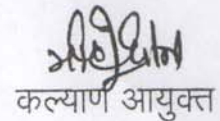 कल्याण आयुक्त